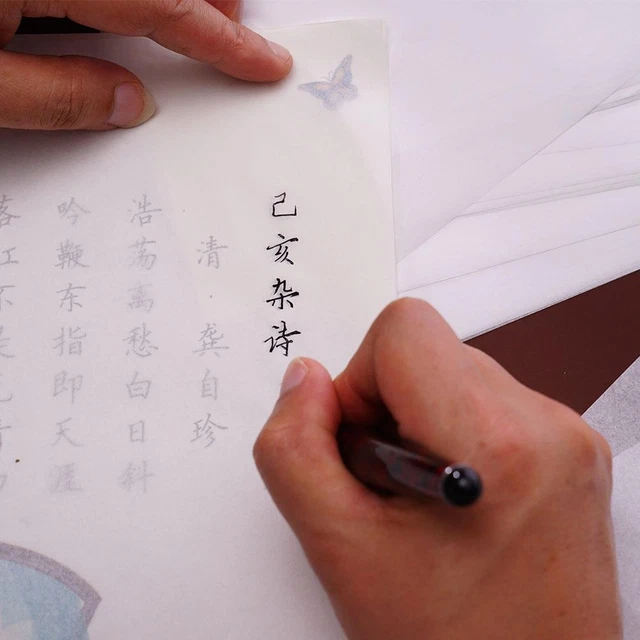 己亥杂诗
清·龚自珍
浩荡离愁白日斜
吟鞭东指即天涯
落红不是无情物